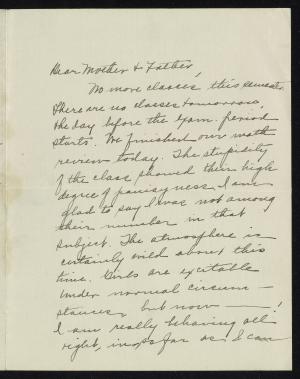 Dear Mother & Father,
No more classes this semester.
There are no classes tomorrow,
the day before the exam. period
starts. We finished our math
review today. The stupidity
of the class showed their high
degree of panicyness. I am
glad to say I was not among
their number in that
subject. The atmosphere is
certainly wild about this
time. Girls are excitable
under normal circum-
stances, but now —— !
I am really behaving all
right, in so far as I can